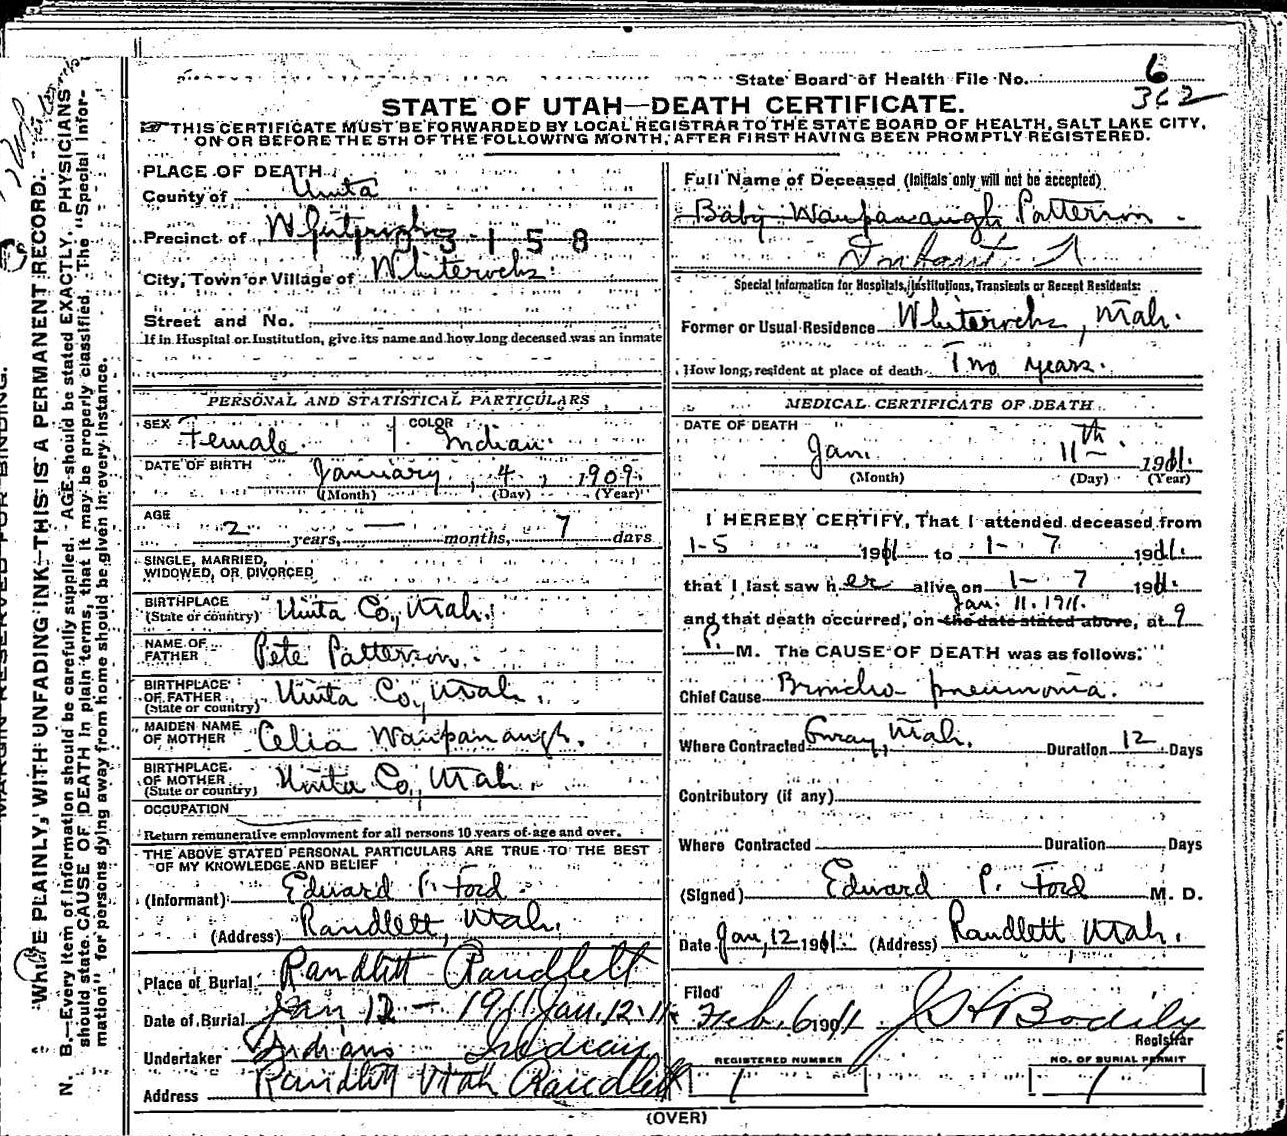 State Board of Health File No. 6
362
STATE OF UTAH—DEATH CERTIFICATE.
THIS CERTIFICATE MUST BE FORWARDED BY LOCAL REGISTRAR TO THE STATE BOARD OF HEALTH, SALT LAKE CITY,
ON OR BEFORE THE 5TH OF THE FOLLOWING MONTH, AFTER FIRST HAVING BEEN PROMPTLY REGISTERED.
MARGIN RESERVED FOR BINDING.
WRITE PLAINLY, WITH UNFADING INK—THIS IS A PERMANENT RECORD.
N. B.—Every item of information should be carefully supplied. AGE should be stated EXACTLY. PHYSICIANS
should state CAUSE OF DEATH in plain terms, that it may be properly classified. The "Special Infor-
mation" for persons dying away from home should be given in every instance.
PLACE OF DEATH
County of Uinta
Precinct of Whiterocks
0 3 1 5 8
City, Town or Village of Whiterocks
Street and No.
If in Hospital or Institution, give its name and how long deceased was an inmate
PERSONAL AND STATISTICAL PARTICULARS
SEX Female COLOR Indian
DATE OF BIRTH January, 4, 1909.
(Month) (Day) (Year)
AGE
2 years, — months, 7 days
SINGLE, MARRIED,
WIDOWED, OR DIVORCED
BIRTHPLACE
(State or country) Uinta Co., Utah.
NAME OF
FATHER Pete Patterson.
BIRTHPLACE
OF FATHER
(State or country) Uinta Co., Utah.
MAIDEN NAME
OF MOTHER Celia Waupanaugh.
BIRTHPLACE
OF MOTHER
(State or country) Uinta Co., Utah.
OCCUPATION
Return remunerative employment for all persons 10 years of age and over.
THE ABOVE STATED PERSONAL PARTICULARS ARE TRUE TO THE BEST
OF MY KNOWLEDGE AND BELIEF
(Informant) Edward P. Ford
(Address) Randlett, Utah.
Place of Burial Randlett Randlett
Date of Burial Jan 12 - 1911 Jan. 12. 11
Undertaker Indians Indian
Address Randlett Utah Randlett
Full Name of Deceased (Initials only will not be accepted)
Baby Waupanaugh Patterson.
Infant 1
Special Information for Hospitals, Institutions, Transients or Recent Residents:
Former or Usual Residence Whiterocks, Utah.
How long resident at place of death Two years.
MEDICAL CERTIFICATE OF DEATH
DATE OF DEATH
Jan. 11th 1911.
(Month) (Day) (Year)
I HEREBY CERTIFY, That I attended deceased from
1-5 1911 to 1-7 1911.
that I last saw her alive on 1-7 1911.
Jan. 11. 1911.
and that death occurred, on the date stated above, at 9
P. M. The CAUSE OF DEATH was as follows:
Chief Cause Broncho pneumonia.
Where Contracted Ouray, Utah. Duration 12 Days
Contributory (if any)
Where Contracted Duration Days
(Signed) Edward P. Ford M. D.
Date Jan, 12 1911. (Address) Randlett Utah.
Filed
Feb. 6 1911 J H Bodily
Registrar
REGISTERED NUMBER
1
NO. OF BURIAL PERMIT
1
(OVER)